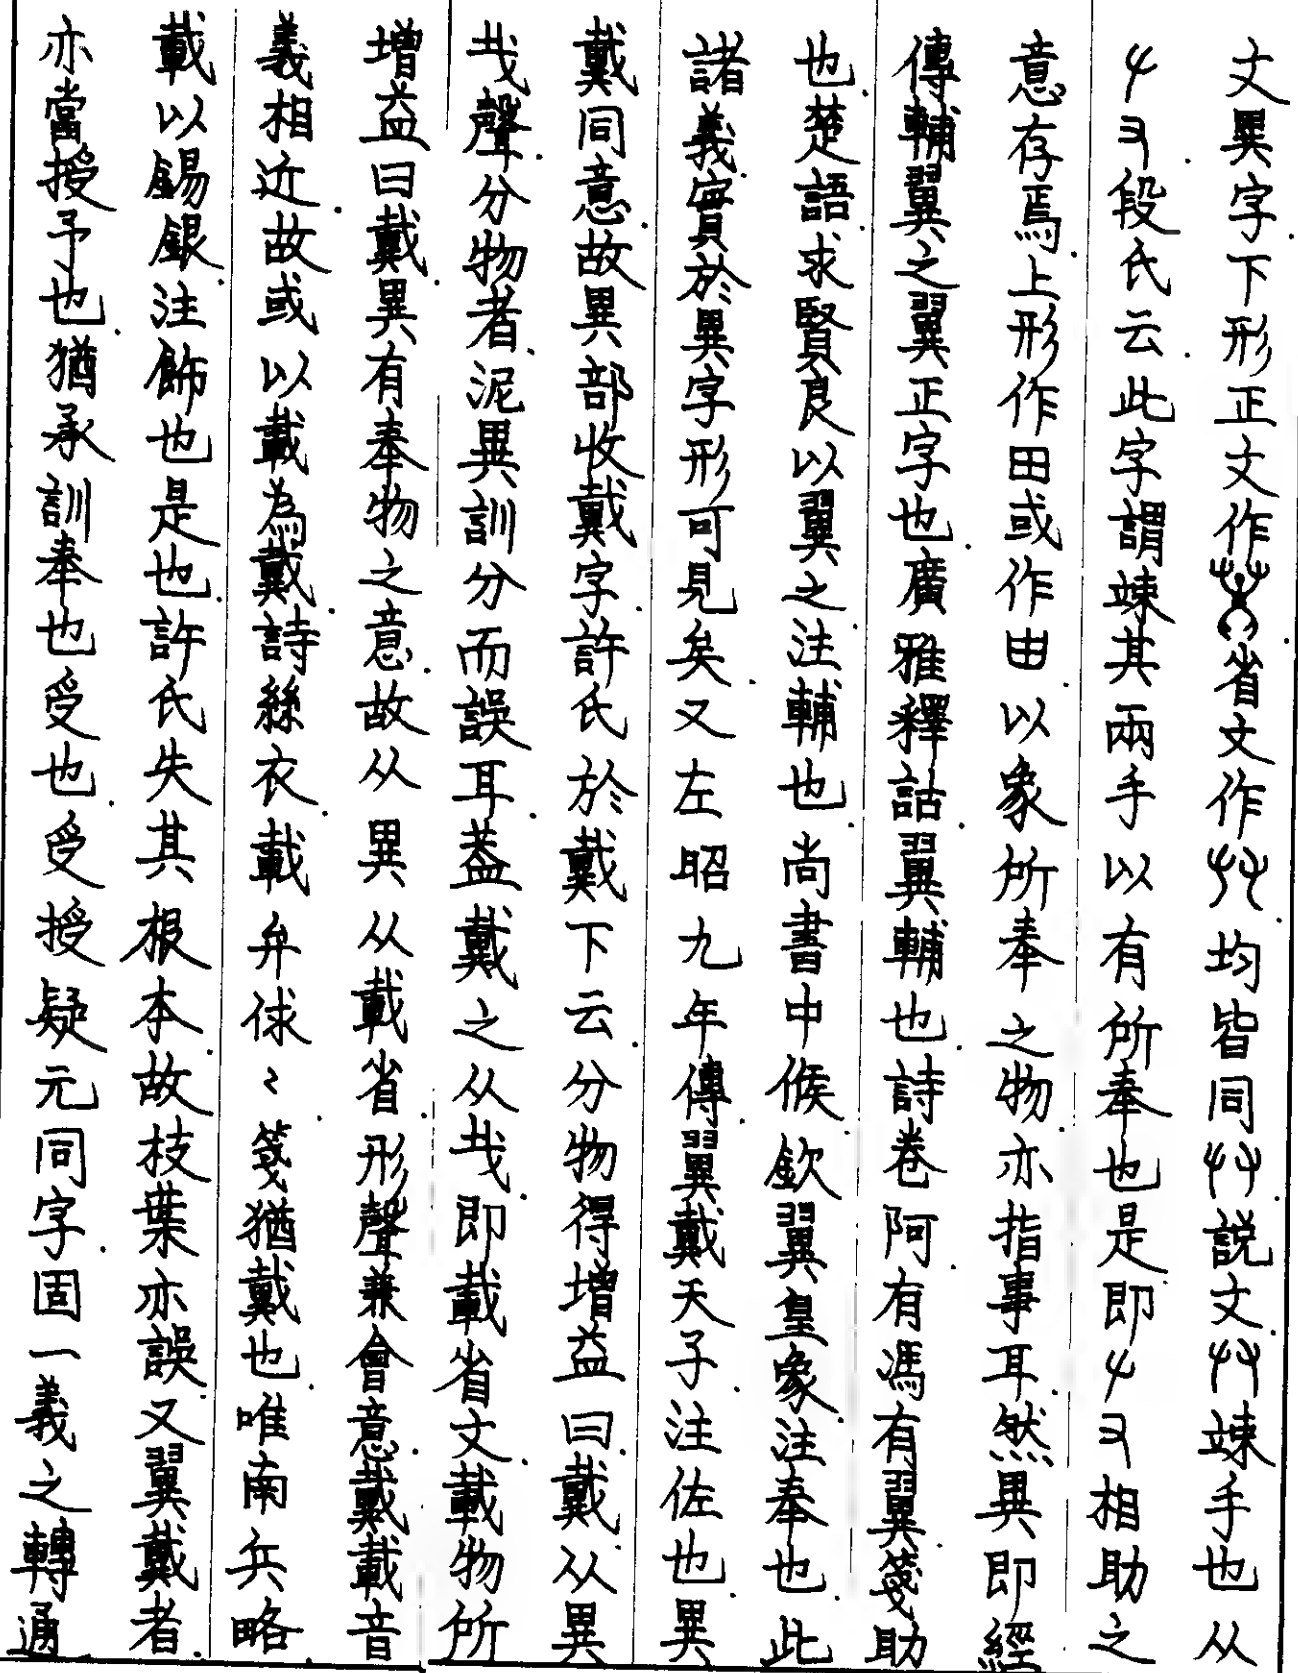 文異字下形正文作省文作𠬞均皆同𠬞説文𠬞竦手也从
𠂇又段氏云此字謂竦其兩手以有所奉也是即𠂇又相助之
意存焉上形作田或作由以象所奉之物亦指事耳然異即經
傳輔翼之翼正字也廣雅釋詁翼輔也詩卷阿有馮有翼箋助
也楚語求賢良以翼之注輔也尚書中候欽翼皇象注奉也此
諸義實於異字形可見矣又左昭九年傳翼戴天子注佐也異
戴同意故異部收戴字許氏於戴下云分物得增益曰戴从異
𢦏聲分物者泥異訓分而誤耳葢戴之从𢦏即載省文載物所
增益曰戴異有奉物之意故从異从載省形聲兼會意戴載音
義相近故或以載為戴詩絲衣載弁俅〻箋猶戴也唯南兵略
載以錫銀注飾也是也許氏失其根本故枝葉亦誤又翼戴者
亦當授予也猶承訓奉也受也受授疑元同字固一義之轉通